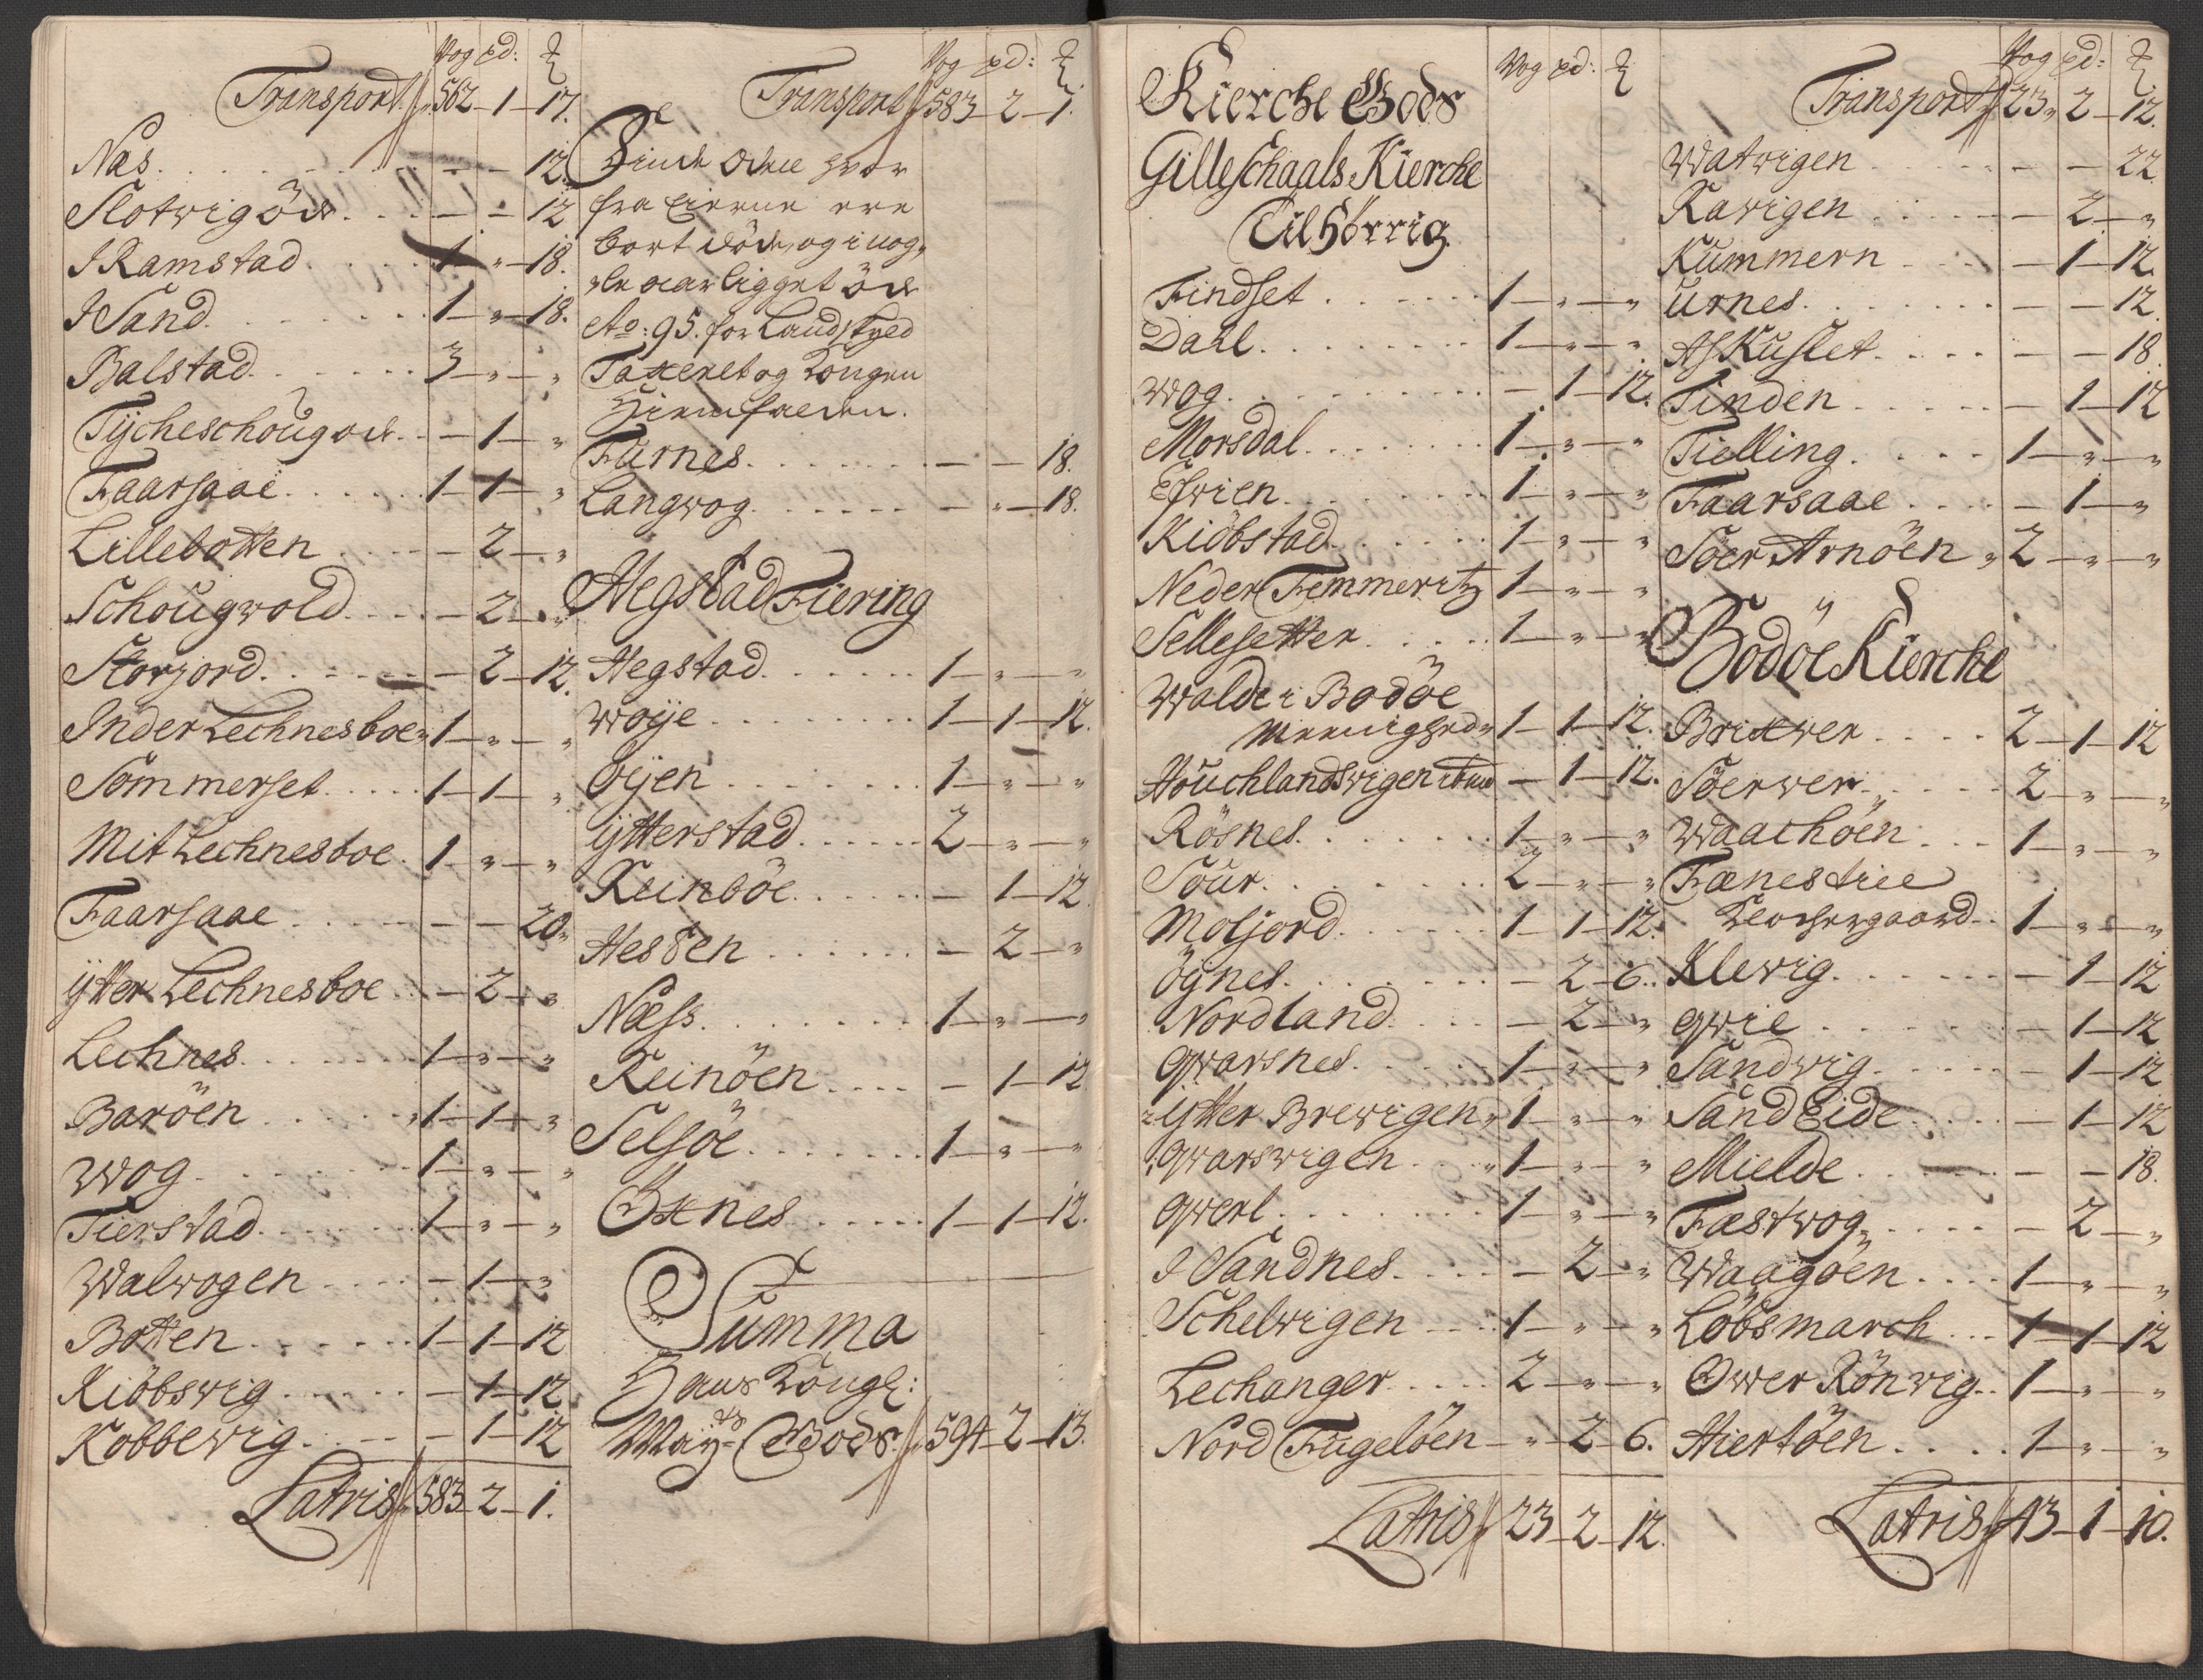 Vog pd: ℔
Transport 562 - 1 - 17.
Næs. - - 12.
Slotwig öde - - 12
I Ramstad 1 - „ - 18.
I Sand. 1 - „ - 18.
Balstad. 3 - „ - „
Tÿcheschoug öde - 1 - „
Faarsaae 1 - 1 - „
Lillebotten - 2 - „
Schougwold. - 2 - „
Storjord. - 2 - 12.
Inder Lechnesboe „ 1 - „ - „
Sommerset 1 - 1 - „
Mit Lechnesboe. 1 - „ - „
Faarsaae - - 20„
ÿtter Lechnesboe - 2 - „
Lechnes. 1 - „ - „
Baröen 1 - 1 - „
Wog 1 - „ - „
Tierstad. 1 - „ - „
Walwogen - 1 - „
Botten 1 - 1 - 12
Kiöbswig - 1 - 12
Kobbewig. - 1 - 12
Latris 583 - 2 - 1.
Vog pd: ℔
Transport 583 - 2 - 1.
fra Eierne ere
bort döde, og i nog„
le aar ligget öde
Ao: 95. for Landskyld
Taxeret og Kongen
Hiemfalden.
Furnes. - - 18.
Langwog. - „ - 18.
Hegstad Fiering
Hegstad. 1 - „ - „
Woÿe 1 - 1 - 12.
Öÿen 1 - „ - „
ÿtterstad. 2 - „ - „
Reinböe - 1 - 12.
Hessen - 2 - „
Næss. 1 - „ - „
Reinöen - 1 - 12
Selsöe 1 - „ - „
Öxnes 1 - 1 - 12.
Summa
Hans Kongl:
Maÿts Gods. 594 - 2 - 13.
Vog pd: ℔
Kierche Gods
Gilleschaals Kierche
Tilhörrig
Findset 1 - „ - „
Dahl. 1 - „ - „
Wog. - 1 - 12.
Morsdal. 1 - „ - „
Eswien. 1 - „ - „
Kiöbstad 1 - „ - „
Neder Femmeritz 1 - „ - „
Sellesetter 1 - „ - „
Walde i Bodöe
Meenighed „ 1 - 1 - 12.
Houchlandswigen ibm - 1 - 12.
Rösnes. 1 - „ - „
Sour. 2 - „ - „
Moljord. 1 - 1 - 12.
Ögnes. - 2 - 6.
Nordland. - 2 - „
Qwarsnes. 1 - „ - „
ÿtter Brewigen „ 1 - „ - „
Qwarswigen „ 1 - „ - „
Qwerl 1 - „ - „
I Sandnes. - 2 - „
Schelwigen 1 - „ - „
Lechanger 2 - „ - „
Nord Fugelöen - „ - 2 - 6.
Latris 23 - 2 - 12.
Vog pd: ℔
Transport 23„ 2 - 12.
Watwigen - - 22.
Rawigen - 2 - „
Kummern - 1 - 12.
Urnes. - - 12.
Askuslet. - - 18.
Tinden - 1 - 12
Tielling. 1 - „ - „
Faarsaae - 1 - „
Söer Arnöen „ 2 - „ - „
Bodöe Kierche
Brixwer 2 - 1 - 12
Söerwer 2 - „ - „
Waachöen 1 - „ - „
Fænestree
Klochergaard 1 - „ - „
Klewig. - 1 - 12
Qwie - 1 - 12
Sandwig. - 1 - 12
Sand Eide - 1 - 12
Mielde - - 18.
Fæstwog - 2 - „
Waagöen 1 - „ - „
Löbsmarch 1 - 1 - 12
Owver Rönwig 1 - „ - „
Hiertöen 1 - „ - „
Latris 43 - 1 - 10.